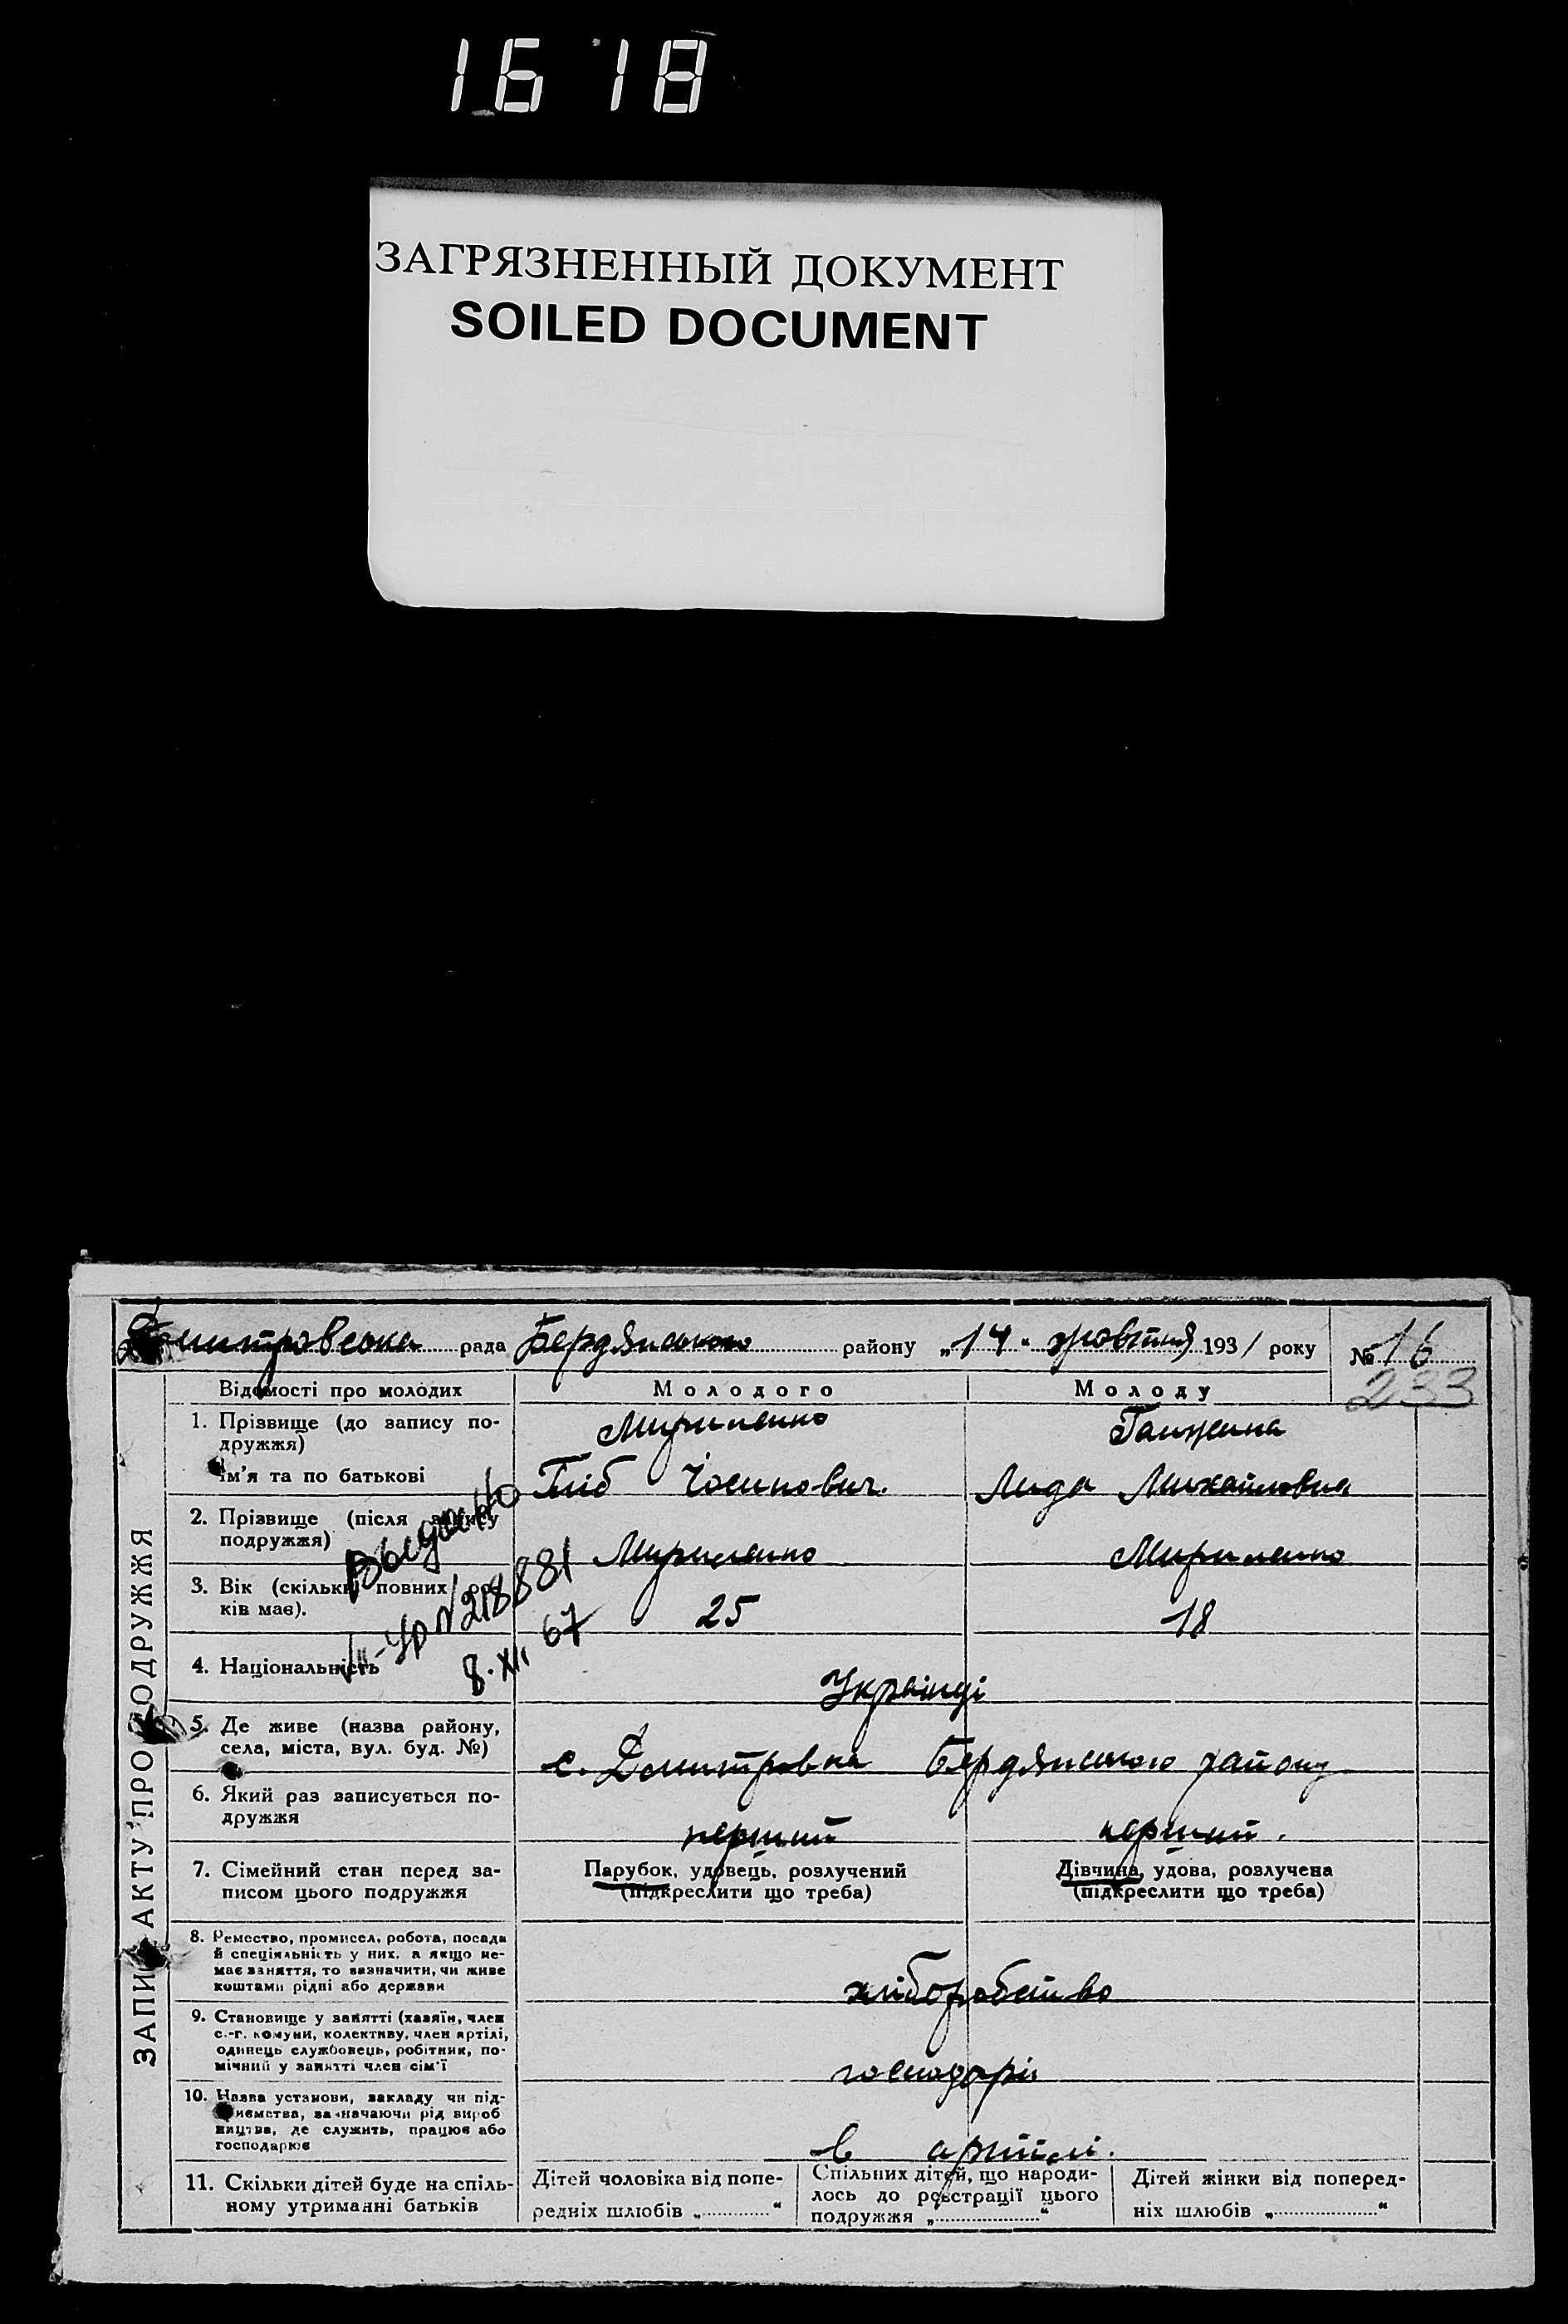 1618
ЗАГРЯЗНЕННЫЙ ДОКУМЕНТ
SOILED DOCUMENT
Дмитровська рада Бердянського району „14“ жовтня 1931 року № 16
233
ЗАПИС АКТУ ПРО ПОДРУЖЖЯ
Відомості про молодих
Молодого
Молоду
1. Прізвище (до запису по-
дружжя)
Ім’я та по батькові
Гліб Йосипович.
Лида Михайловна
2. Прізвище (після запису
подружжя)
Выдано
218881
8.XII 67
3. Вік (скільки повних ро-
ків має).
25
18
4. Національність
Українці
5. Де живе (назва району,
села, міста, вул. буд. №)
с. Дмитровка Бердянського району
6. Який раз записується по-
дружжя
перший
перший.
7. Сімейний стан перед за-
писом цього подружжя
Парубок, удовець, розлучений
(підкреслити що треба)
Дівчина, удова, розлучена
(підкреслити що треба)
8. Ремество, промисел, робота, посада
й спеціяльність у них, а якщо не-
має заняття, то зазначити, чи живе
коштами рідні або держави
хліборобство
9. Становище у занятті (хазяїн, член
с.-г. комуни, колективу, член артілі,
одинець службовець, робітник, по-
мічний у занятті член сім’ї
господарі
10. Назва установи, закладу чи під-
приємства, зазначаючи рід вироб
ництва, де служить, працює або
господарює
в артілі.
11. Скільки дітей буде на спіль-
ному утриманні батьків
Дітей чоловіка від попе-
редніх шлюбів „ “
Спільних дітей, що народи-
лось до реєстрації цього
подружжя „ “
Дітей жінки від поперед-
ніх шлюбів „ “